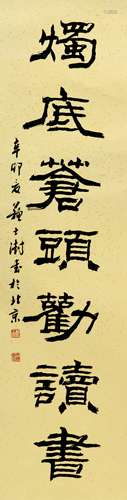 燭底蒼頭勸讀書
辛卯夏蘇士澍書於北京